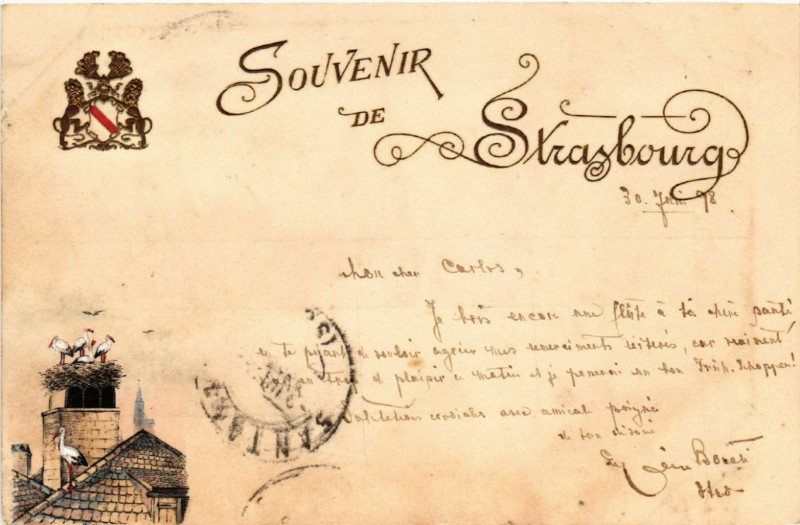 SOUVENIR
DE
Strasbourg
30. Juin 98
Mon cher Carlos,
Je bois encore une flûte à ta chère santé
en te priant de vouloir agréer mes remerciments réitérés, car vraiment
de plaisir ce matin et je penserai au bon Früh-Schoppen!
Salutations cordiales avec amicale poignée
de ton
SANTA